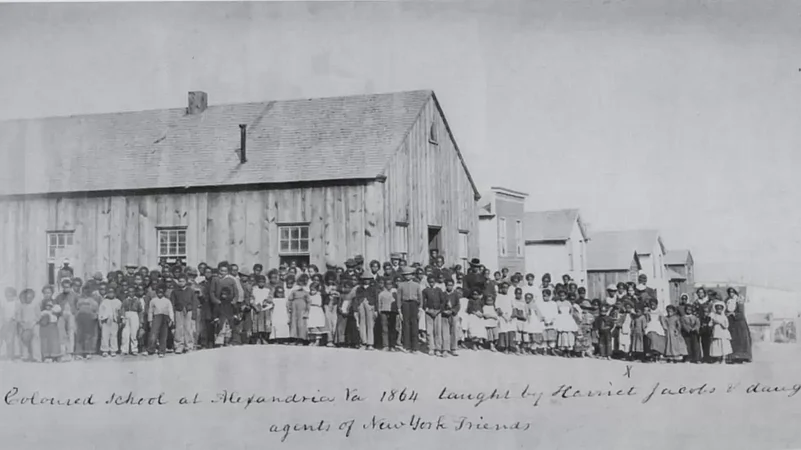 x
Coloured School at Alexandria Va 1864 taught by Harriet Jacobs & daug
agents of New York Friends